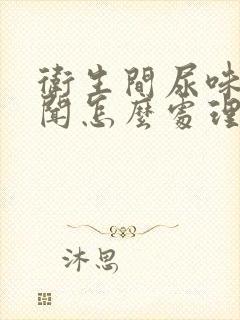 衛生間尿味
聞怎麼處理
沐思